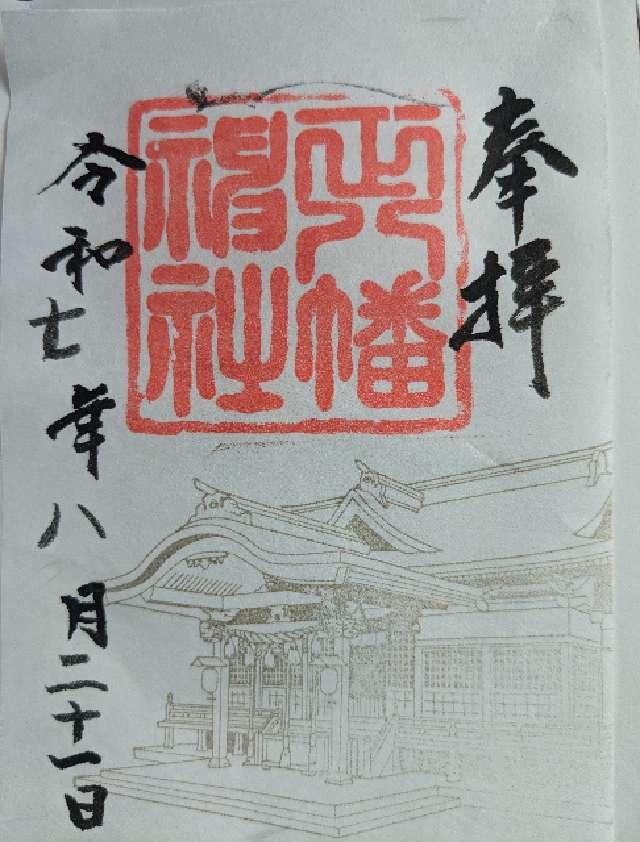 奉拝
正八幡
神社
令和七年八月二十一日